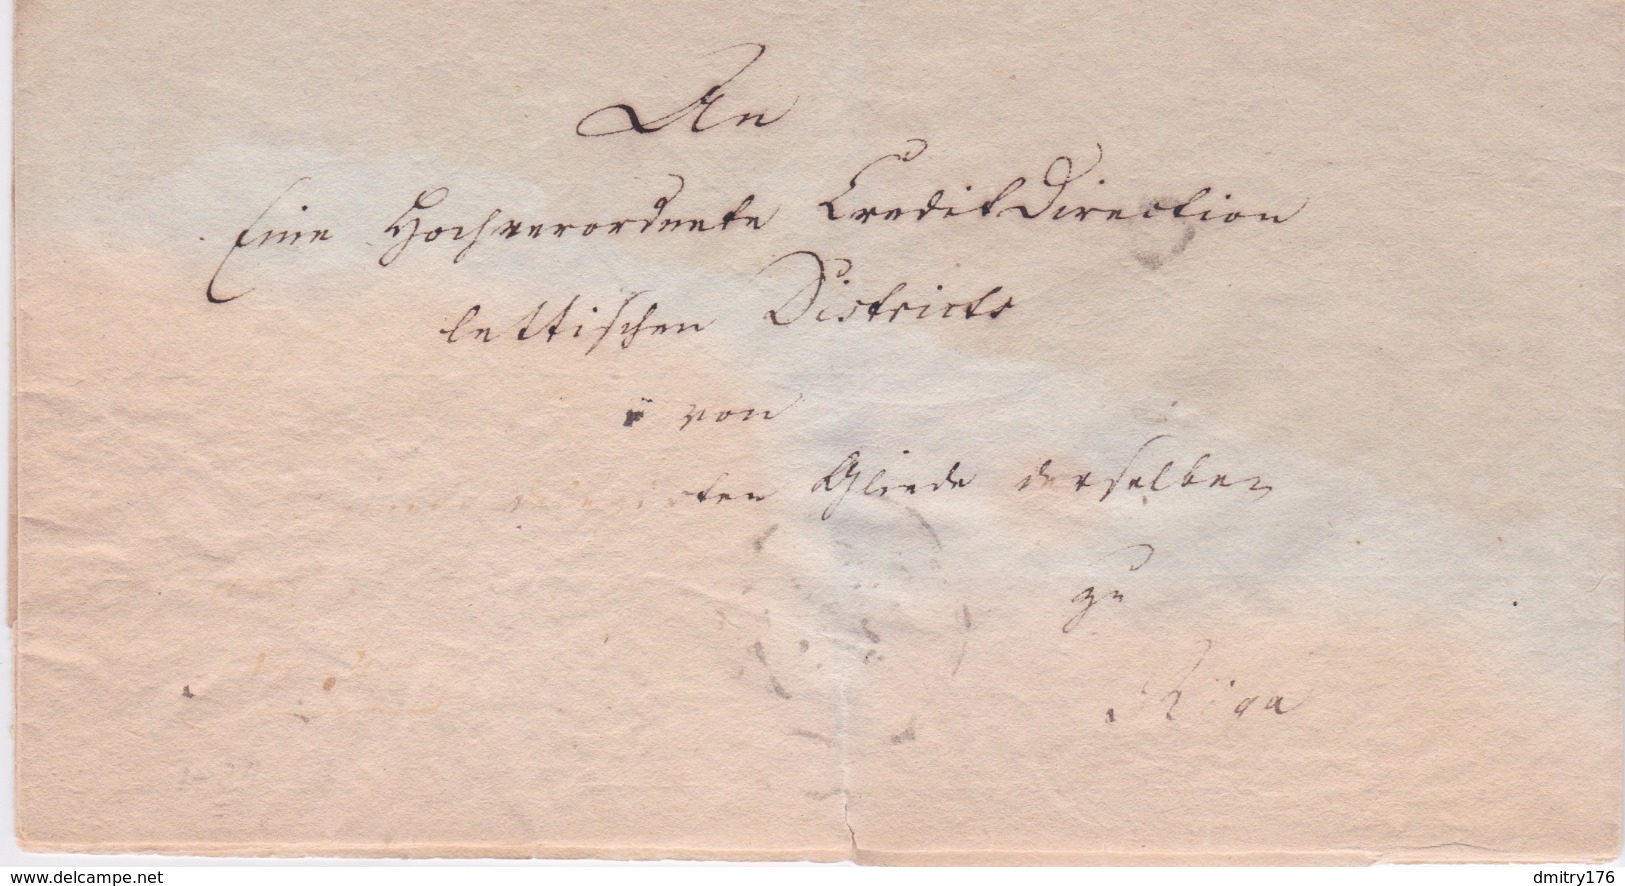 An
Eine Hochverordnete CreditDirection
lettischen Districts
von
Gliede derselben
zu
Riga
www.delcampe.net
dmitry176